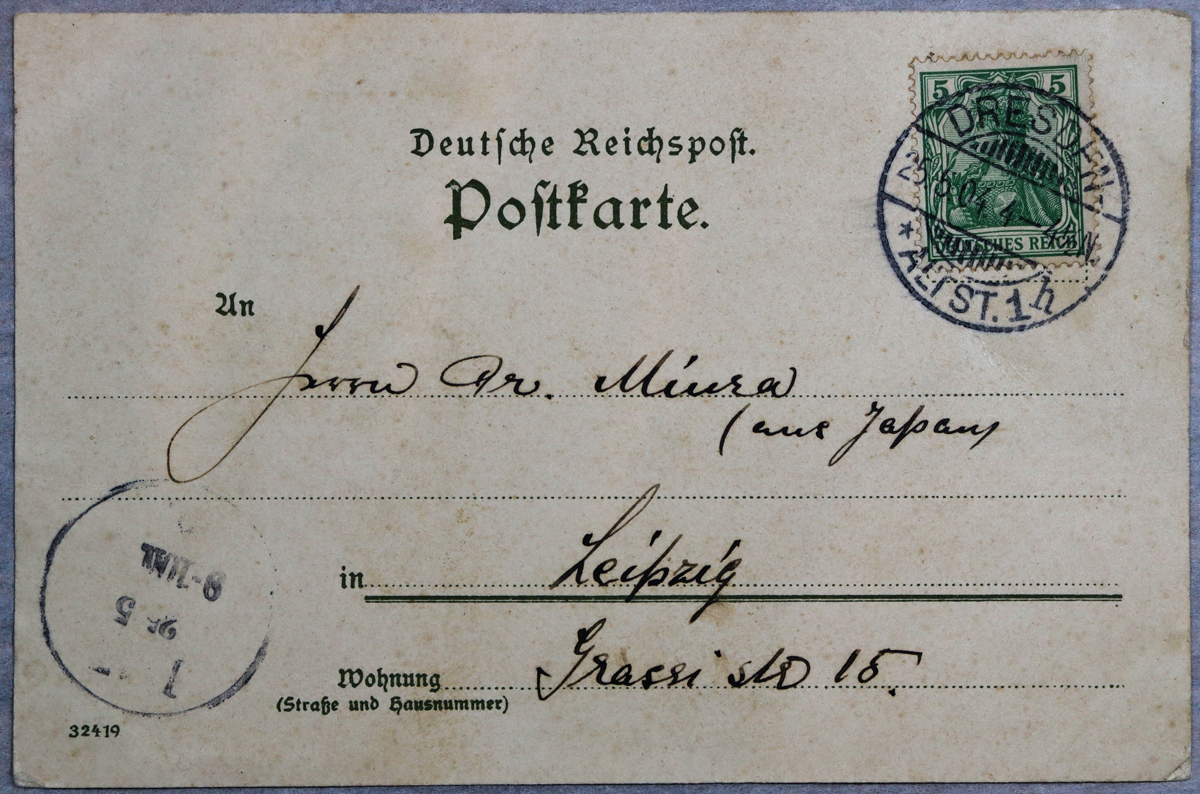 Deutsche Reichspost.
Postkarte.
5 5
DEUTSCHES REICH
DRESDEN
5.04. 4-
* ALTST. 1 h
An
Herrn Dr. Miura
(aus Japan)
in Leipzig
Wohnung Grassi str 15.
(Straße und Hausnummer)
26 5
32419